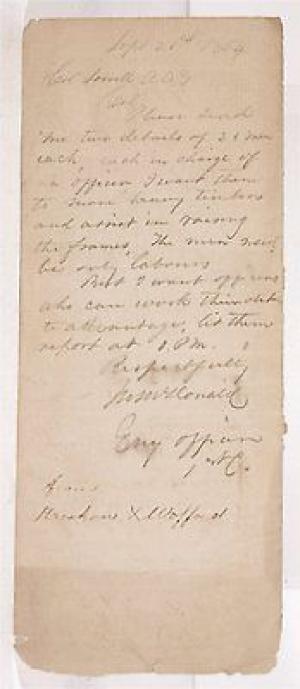 Sept 21st 1864
Col Sorrell A.A.G
Col
Please send
me two details of 25 men
each each in charge of
an officer I want them
to move heavy timbers
and assist in raising
the frames, The men need
be only labourers
But I want officers
who can work their det
to advantage, let them
report at 1 P.M.
Respectfully
McDonald
Eng officer
1st C.
from
Kershaw & Wofford